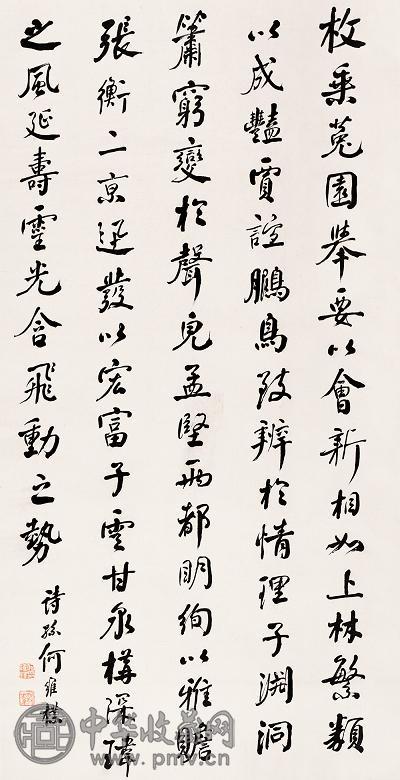 枚乘菟園舉要以會新相如上林繁類
以成豔賈誼鵬鳥致辨於情理子淵洞
簫窮變於聲皃孟堅兩都明絢以雅贍
張衡二京迅發以宏富子雲甘泉構深瑋
之風延壽靈光含飛動之勢
詩孫何維樸
中华收藏网
www.pmv.cn